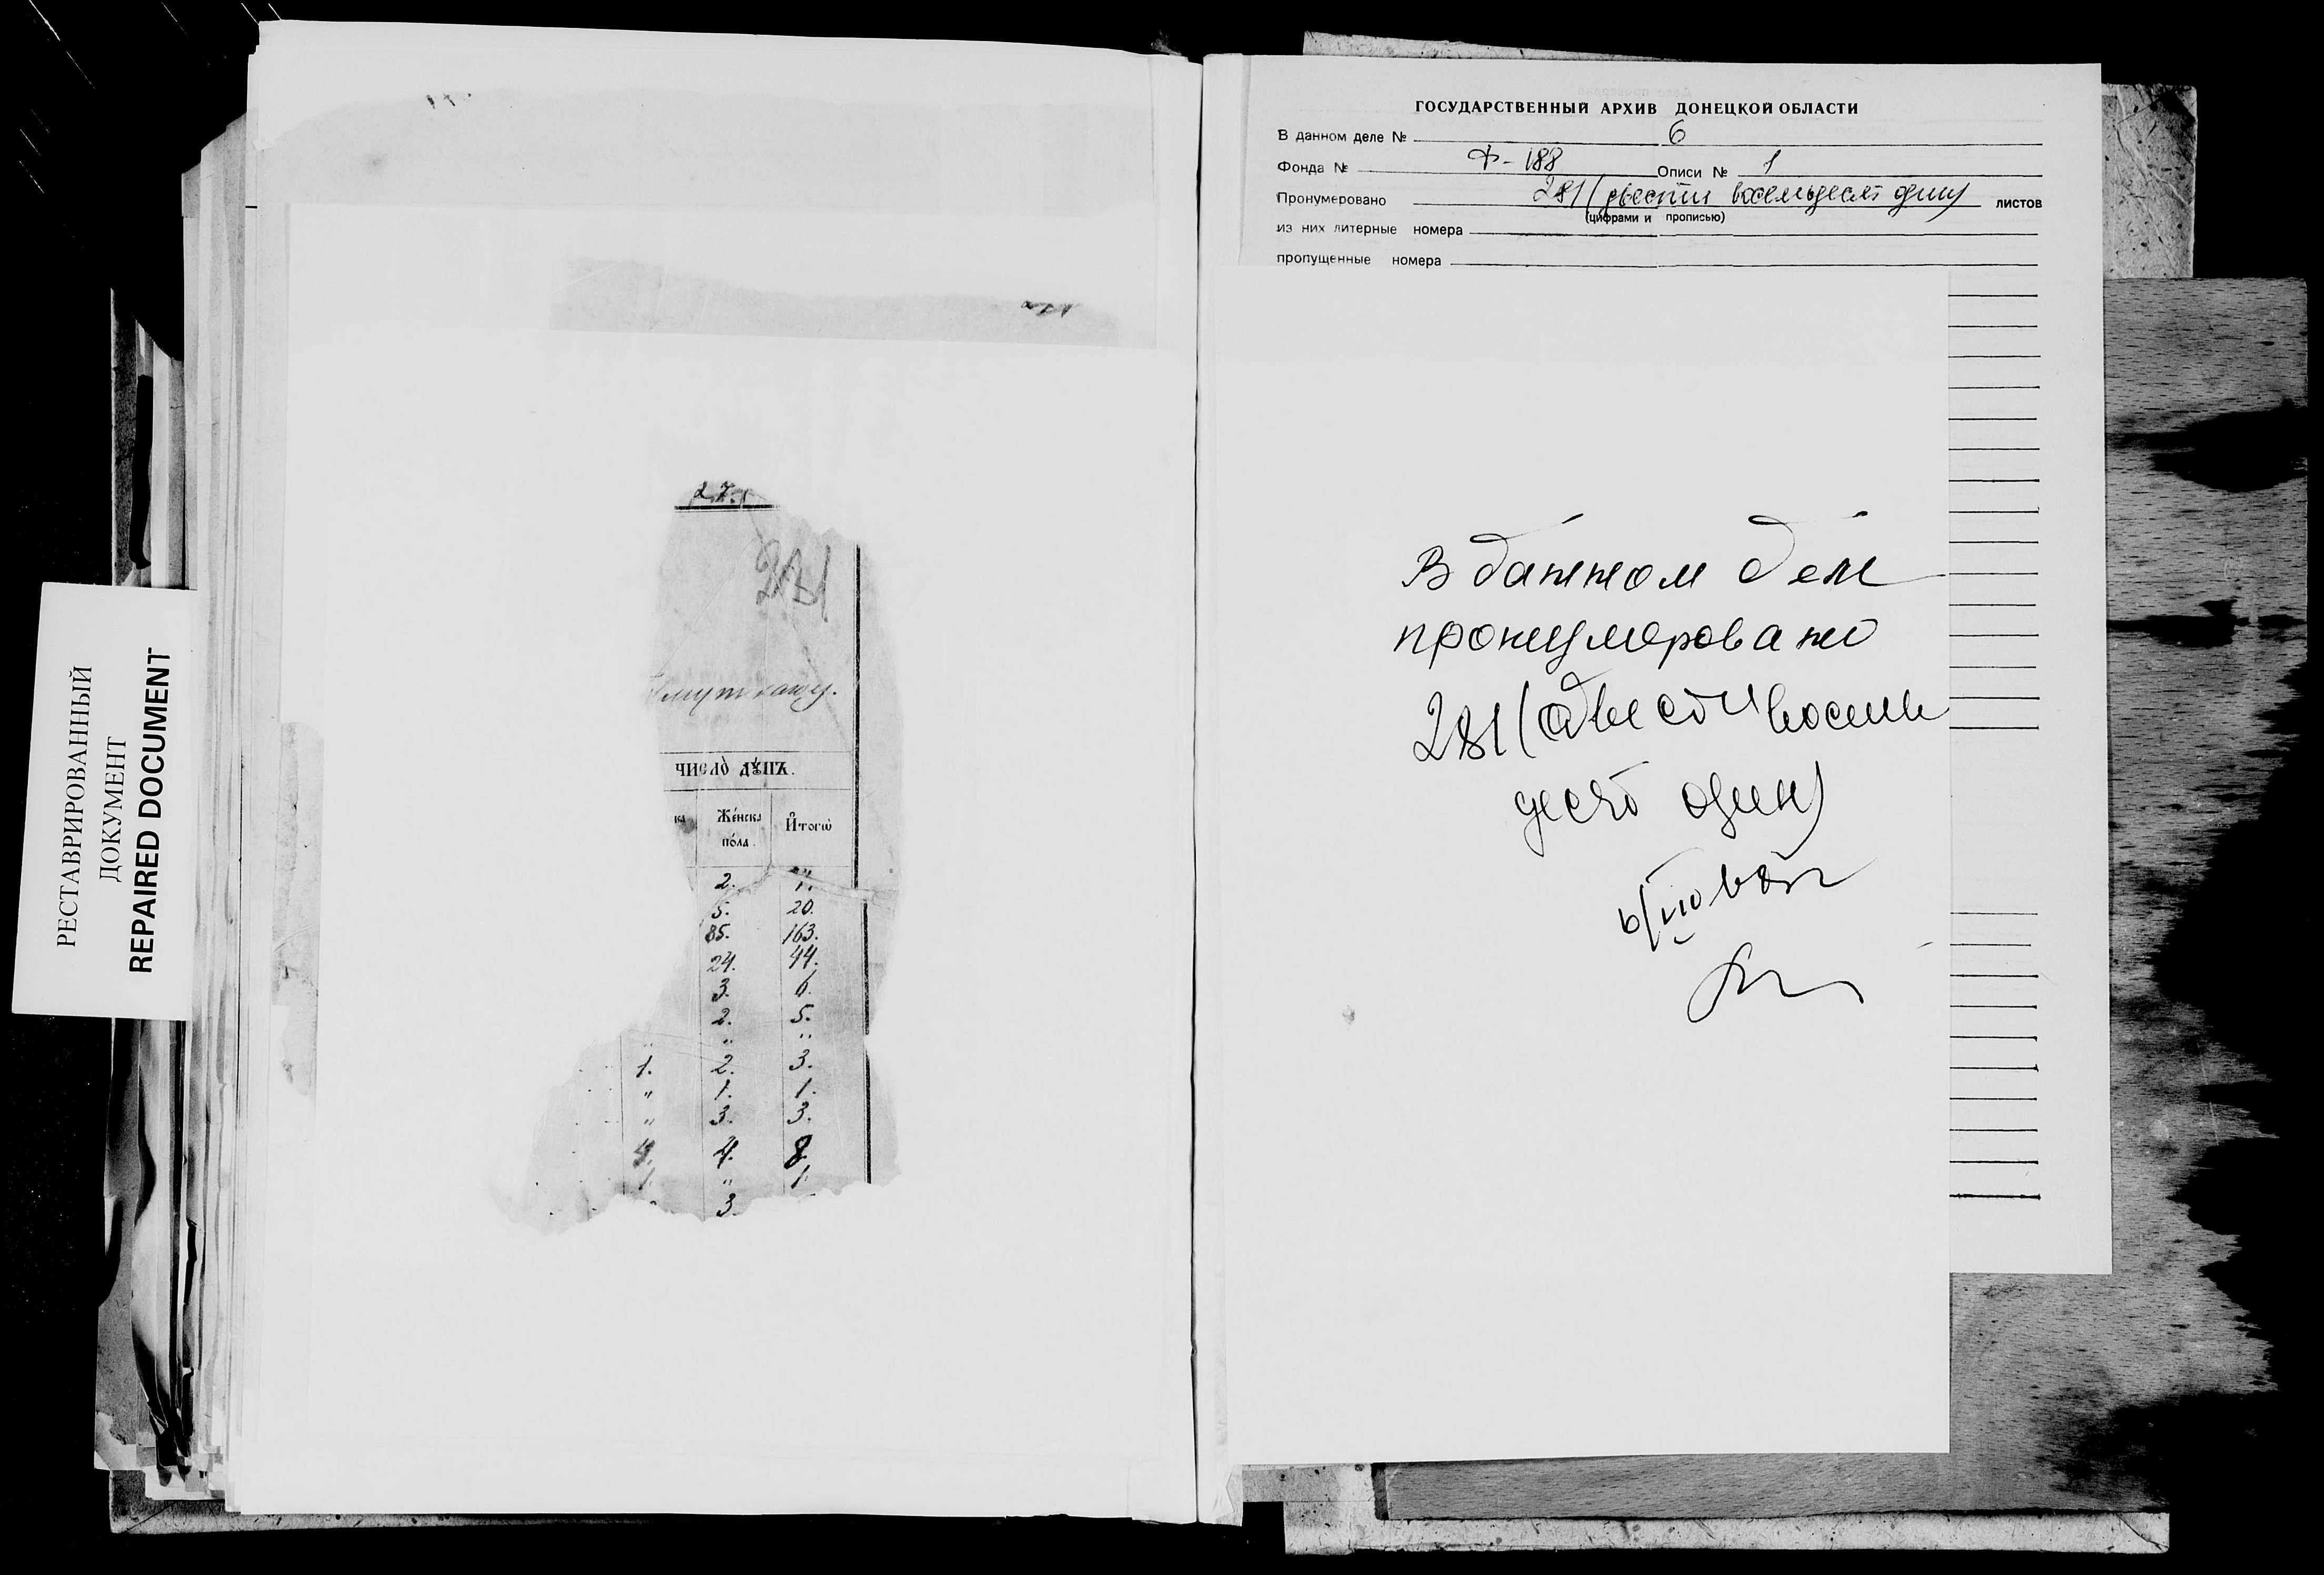 РЕСТАВРИРОВАННЫЙ
ДОКУМЕНТ
REPAIRED DOCUMENT
27.
281
мутскану.
ЧИСЛО ДУШЪ.
ка Же́нска По́ла. И҆того̀
2. 7.
5. 20.
85. 163.
24. 44.
3. 6.
2. 5.
„ „ „
1. 2. 3.
„ 1. 1.
„ 3. 3.
4. 4. 8.
1. „ 1.
3.
ГОСУДАРСТВЕННЫЙ АРХИВ ДОНЕЦКОЙ ОБЛАСТИ
В данном деле № 6
Фонда № Ф-188 Описи № 1
Пронумеровано 281 (двести восемьдесят один) листов
(цифрами и прописью)
из них литерные номера
пропущенные номера
В данном деле
пронумеровано
281 (двести восемь
десят один)